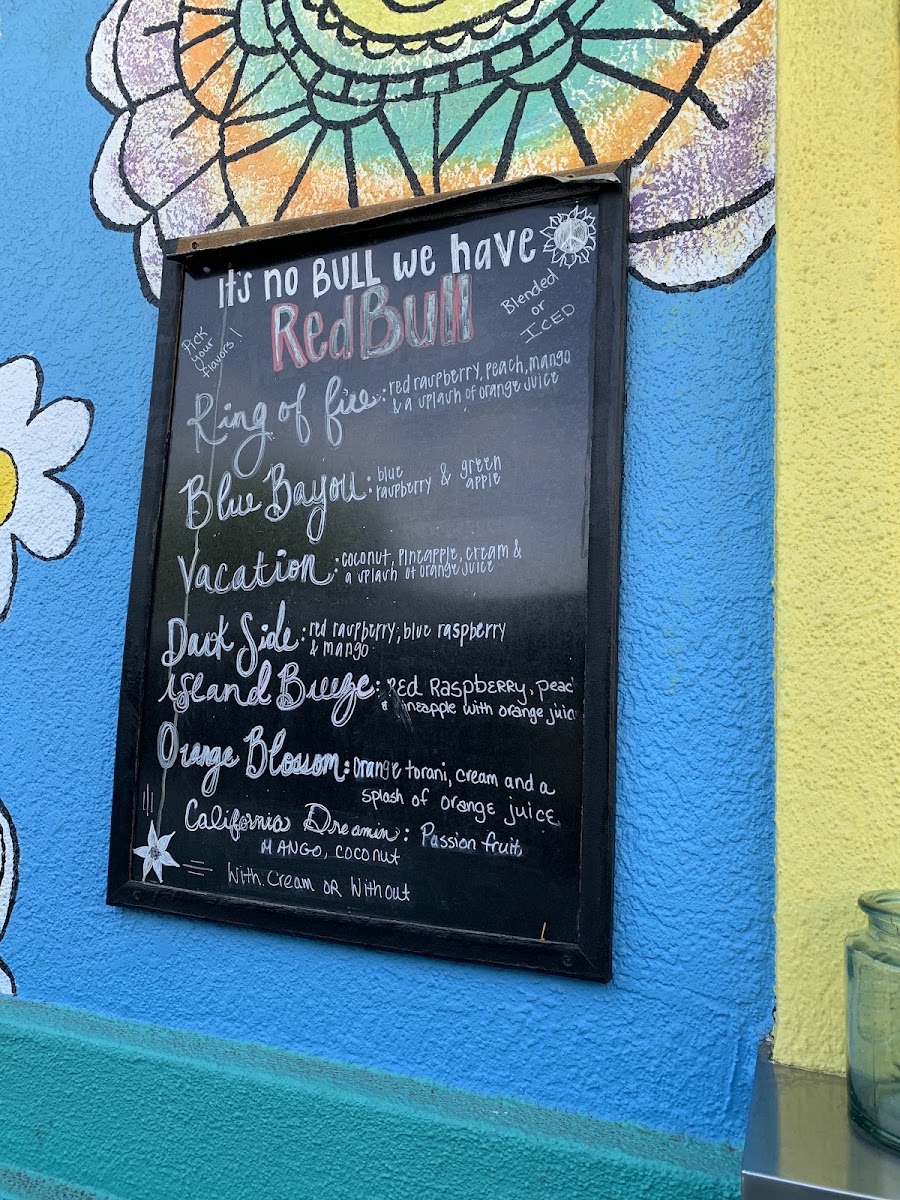 It's no BULL we have
RedBull
Pick
your
flavors!
Blended
or
ICED
Ring of fire: red raspberry, peach, mango
& a splash of orange juice
Blue Bayou: blue
raspberry & green
apple
Vacation: coconut, pineapple, cream &
a splash of orange juice
Dark Side: red raspberry, blue raspberry
& mango
Island Breeze: RED RASPBERRY, peac
& ineapple with orange juic
Orange Blossom: orange torani, cream and a
splash of orange juice
California Dreamin: Passion fruit,
MANGO, coconut
With Cream OR Without